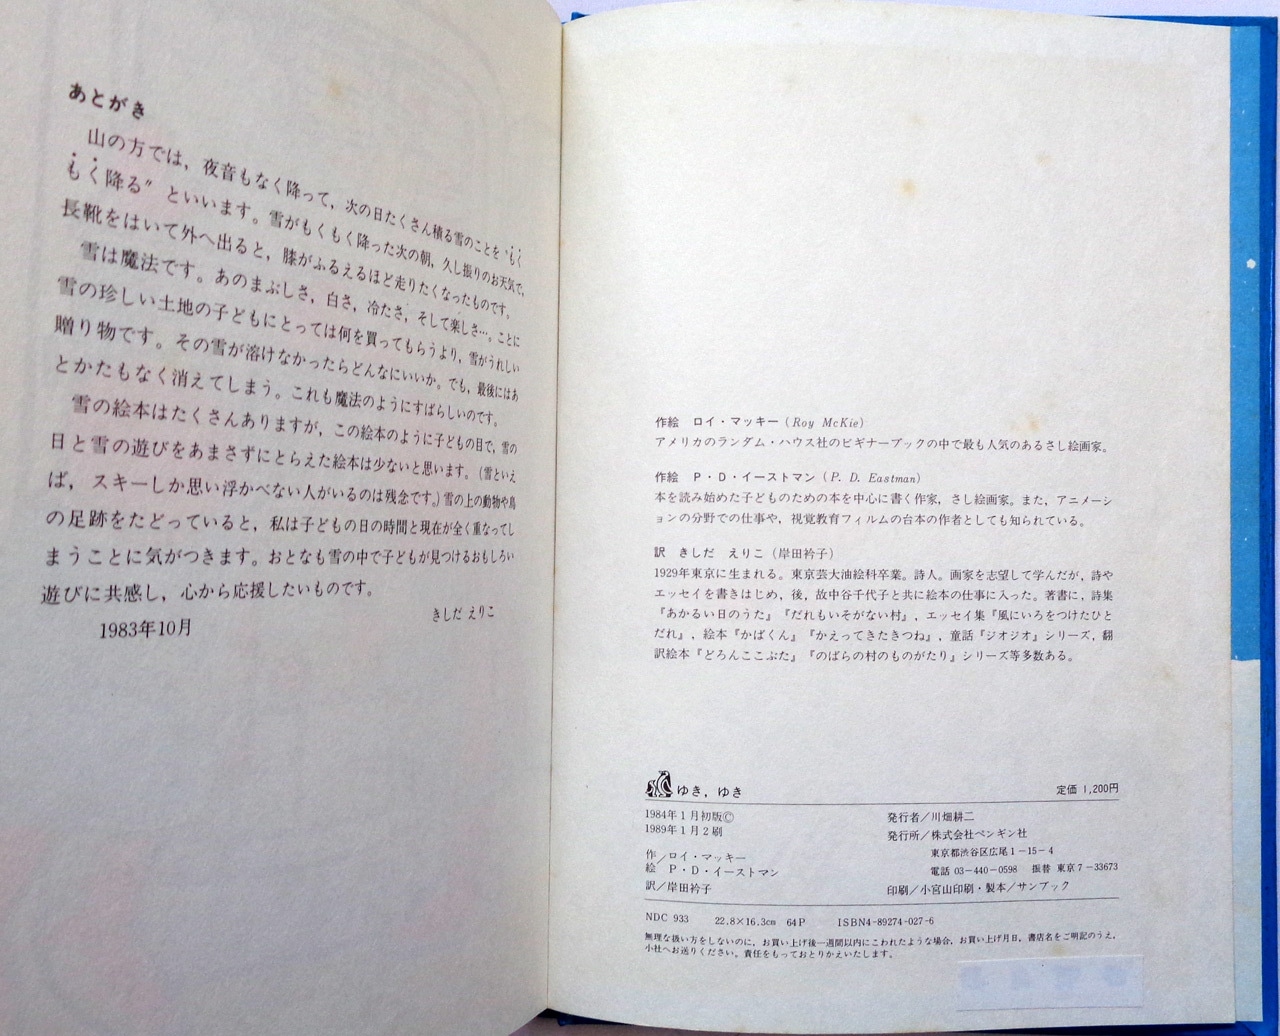 あとがき
山の方では，夜音もなく降って，次の日たくさん積る雪のことを〝もく
もく降る〟といいます。雪がもくもく降った次の朝，久し振りのお天気で，
長靴をはいて外へ出ると，膝がふるえるほど走りたくなったものです。
雪は魔法です。あのまぶしさ，白さ，冷たさ，そして楽しさ…。ことに
雪の珍しい土地の子どもにとっては何を買ってもらうより，雪がうれしい
贈り物です。その雪が溶けなかったらどんなにいいか。でも，最後にはあ
とかたもなく消えてしまう。これも魔法のようにすばらしいのです。
雪の絵本はたくさんありますが，この絵本のように子どもの目で，雪の
日と雪の遊びをあまさずにとらえた絵本は少ないと思います。（雪といえ
ば，スキーしか思い浮かべない人がいるのは残念です。）雪の上の動物や鳥
の足跡をたどっていると，私は子どもの日の時間と現在が全く重なってし
まうことに気がつきます。おとなも雪の中で子どもが見つけるおもしろい
遊びに共感し，心から応援したいものです。
きしだ えりこ
1983年10月
作絵　ロイ・マッキー（Roy McKie）
アメリカのランダム・ハウス社のビギナーブックの中で最も人気のあるさし絵画家。
作絵　P・D・イーストマン（P. D. Eastman）
本を読み始めた子どものための本を中心に書く作家，さし絵画家。また，アニメーシ
ョンの分野での仕事や，視覚教育フィルムの台本の作者としても知られている。
訳　きしだ　えりこ（岸田衿子）
1929年東京に生まれる。東京芸大油絵科卒業。詩人。画家を志望して学んだが，詩や
エッセイを書きはじめ，後，故中谷千代子と共に絵本の仕事に入った。著書に，詩集
『あかるい日のうた』『だれもいそがない村』，エッセイ集『風にいろをつけたひと
だれ』，絵本『かばくん』『かえってきたきつね』，童話『ジオジオ』シリーズ，翻
訳絵本『どろんここぶた』『のばらの村のものがたり』シリーズ等多数ある。
ゆき，ゆき
定価 1,200円
1984年１月初版©
1989年１月２刷
作／ロイ・マッキー
絵　P・D・イーストマン
訳／岸田衿子
発行者／川畑耕二
発行所／株式会社ペンギン社
東京都渋谷区広尾１－15－４
電話 03－440－0598　振替 東京７－33673
印刷／小宮山印刷・製本／サンブック
NDC 933　22.8×16.3cm　64P　ISBN4-89274-027-6
無理な扱い方をしないのに，お買い上げ後一週間以内にこわれたような場合，お買い上げ月日，書店名をご明記のうえ，
小社へお送りください。責任をもっておとりかえいたします。